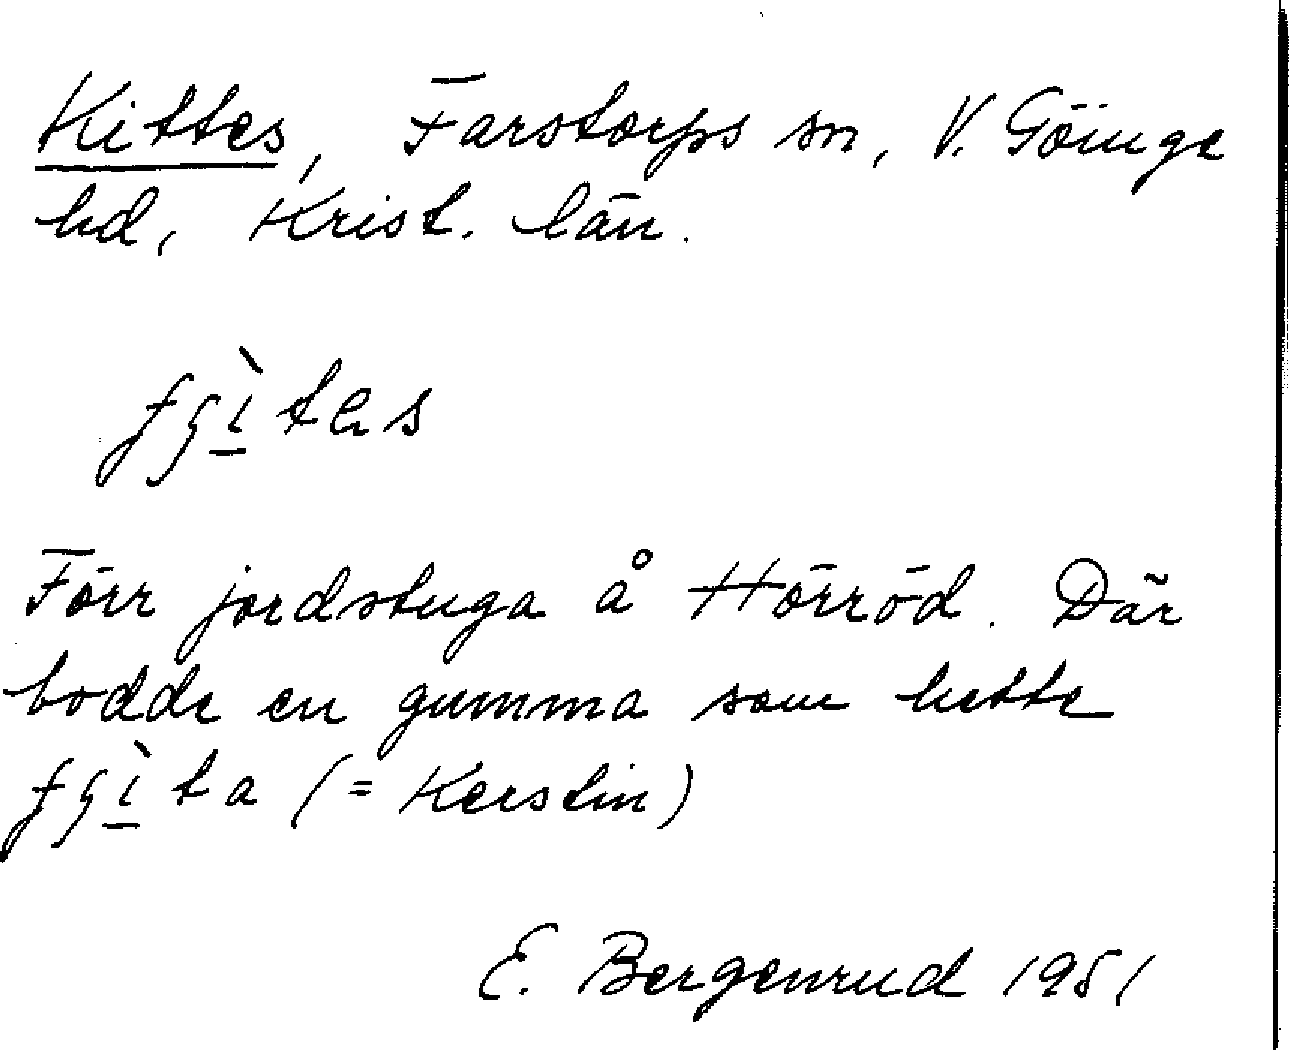 Kittes, Farstorps sn, V. Göinge
hd, Krist. län.
Förr jordstuga å Hörröd. Där
bodde en gumma som hette
(= Kerstin)
E. Bergenrud 1951